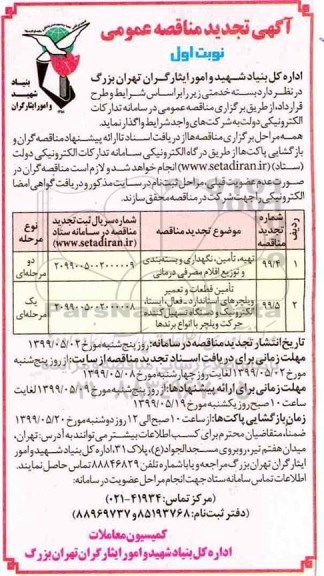 آگهی تجدید مناقصه عمومی
نوبت اول
بنیاد
شهید
و امور ایثارگران
اداره کل بنیاد شهید و امور ایثارگران تهران بزرگ
در نظر دارد بسته خدمتی زیر را بر اساس شرایط و طرح
قرارداد، از طریق برگزاری مناقصه عمومی در سامانه تدارکات
الکترونیکی دولت به شرکت‌های واجد شرایط واگذار نماید.
همه مراحل برگزاری مناقصه‌ها از دریافت اسناد تا ارائه پیشنهاد مناقصه‌گران و
بازگشایی پاکت‌ها از طریق درگاه الکترونیکی سامانه تدارکات الکترونیکی دولت
(ستاد) (www.setadiran.ir) انجام خواهد شد و لازم است مناقصه‌گران در
صورت عدم عضویت قبلی، مراحل ثبت‌نام در سایت مذکور و دریافت گواهی امضا
الکترونیکی را جهت شرکت در مناقصه محقق سازند.
ردیف شماره تجدید مناقصه موضوع تجدید مناقصه شماره سریال ثبت تجدید مناقصه در سامانه ستاد (www.setadiran.ir) نوع مرحله
۱ ۹۹/۴ تهیه، تأمین، نگهداری و بسته‌بندی و توزیع اقلام مصرفی درمانی ۲۰۹۹۰۰۵۰۰۲۰۰۰۰۰۹ دو مرحله‌ای
۲ ۹۹/۵ تأمین قطعات و تعمیر ویلچرهای استاندارد ـ فعال، ایستا، الکترونیک و دستگاه تسهیل کننده حرکت ویلچر با انواع برندها ۲۰۹۹۰۰۵۰۰۲۰۰۰۰۰۸ یک مرحله‌ای
تاریخ انتشار تجدید مناقصه در سامانه: روز پنج‌شنبه مورخ ۱۳۹۹/۰۵/۰۲
مهلت زمانی برای دریافت اسناد تجدید مناقصه از سایت: از روز پنج‌شنبه
مورخ ۱۳۹۹/۰۵/۰۲ لغایت روز چهارشنبه مورخ ۱۳۹۹/۰۵/۰۸
مهلت زمانی برای ارائه پیشنهادها: از روز پنج‌شنبه مورخ ۱۳۹۹/۰۵/۰۹ لغایت
ساعت ۱۰ صبح روز یکشنبه مورخ ۱۳۹۹/۰۵/۱۹
زمان بازگشایی پاکت‌ها: از ساعت ۱۰ صبح الی ۱۲ روز دوشنبه مورخ ۱۳۹۹/۰۵/۲۰
ضمناً، متقاضیان محترم برای کسب اطلاعات بیشتر می‌توانند به آدرس: تهران،
میدان هفتم تیر، روبروی مسجد الجواد(ع)، پلاک ۳۱، اداره کل بنیاد شهید و امور
ایثارگران تهران بزرگ مراجعه و یا با شماره تلفن ۸۸۸۴۶۸۲۹ تماس حاصل نمایند.
اطلاعات تماس سامانه ستاد جهت انجام مراحل عضویت در سامانه:
(مرکز تماس: ۴۱۹۳۴-۰۲۱)
(دفتر ثبت‌نام: ۸۵۱۹۳۷۶۸ و ۸۸۹۶۹۷۳۷)
کمیسیون معاملات
اداره کل بنیاد شهید و امور ایثارگران تهران بزرگ